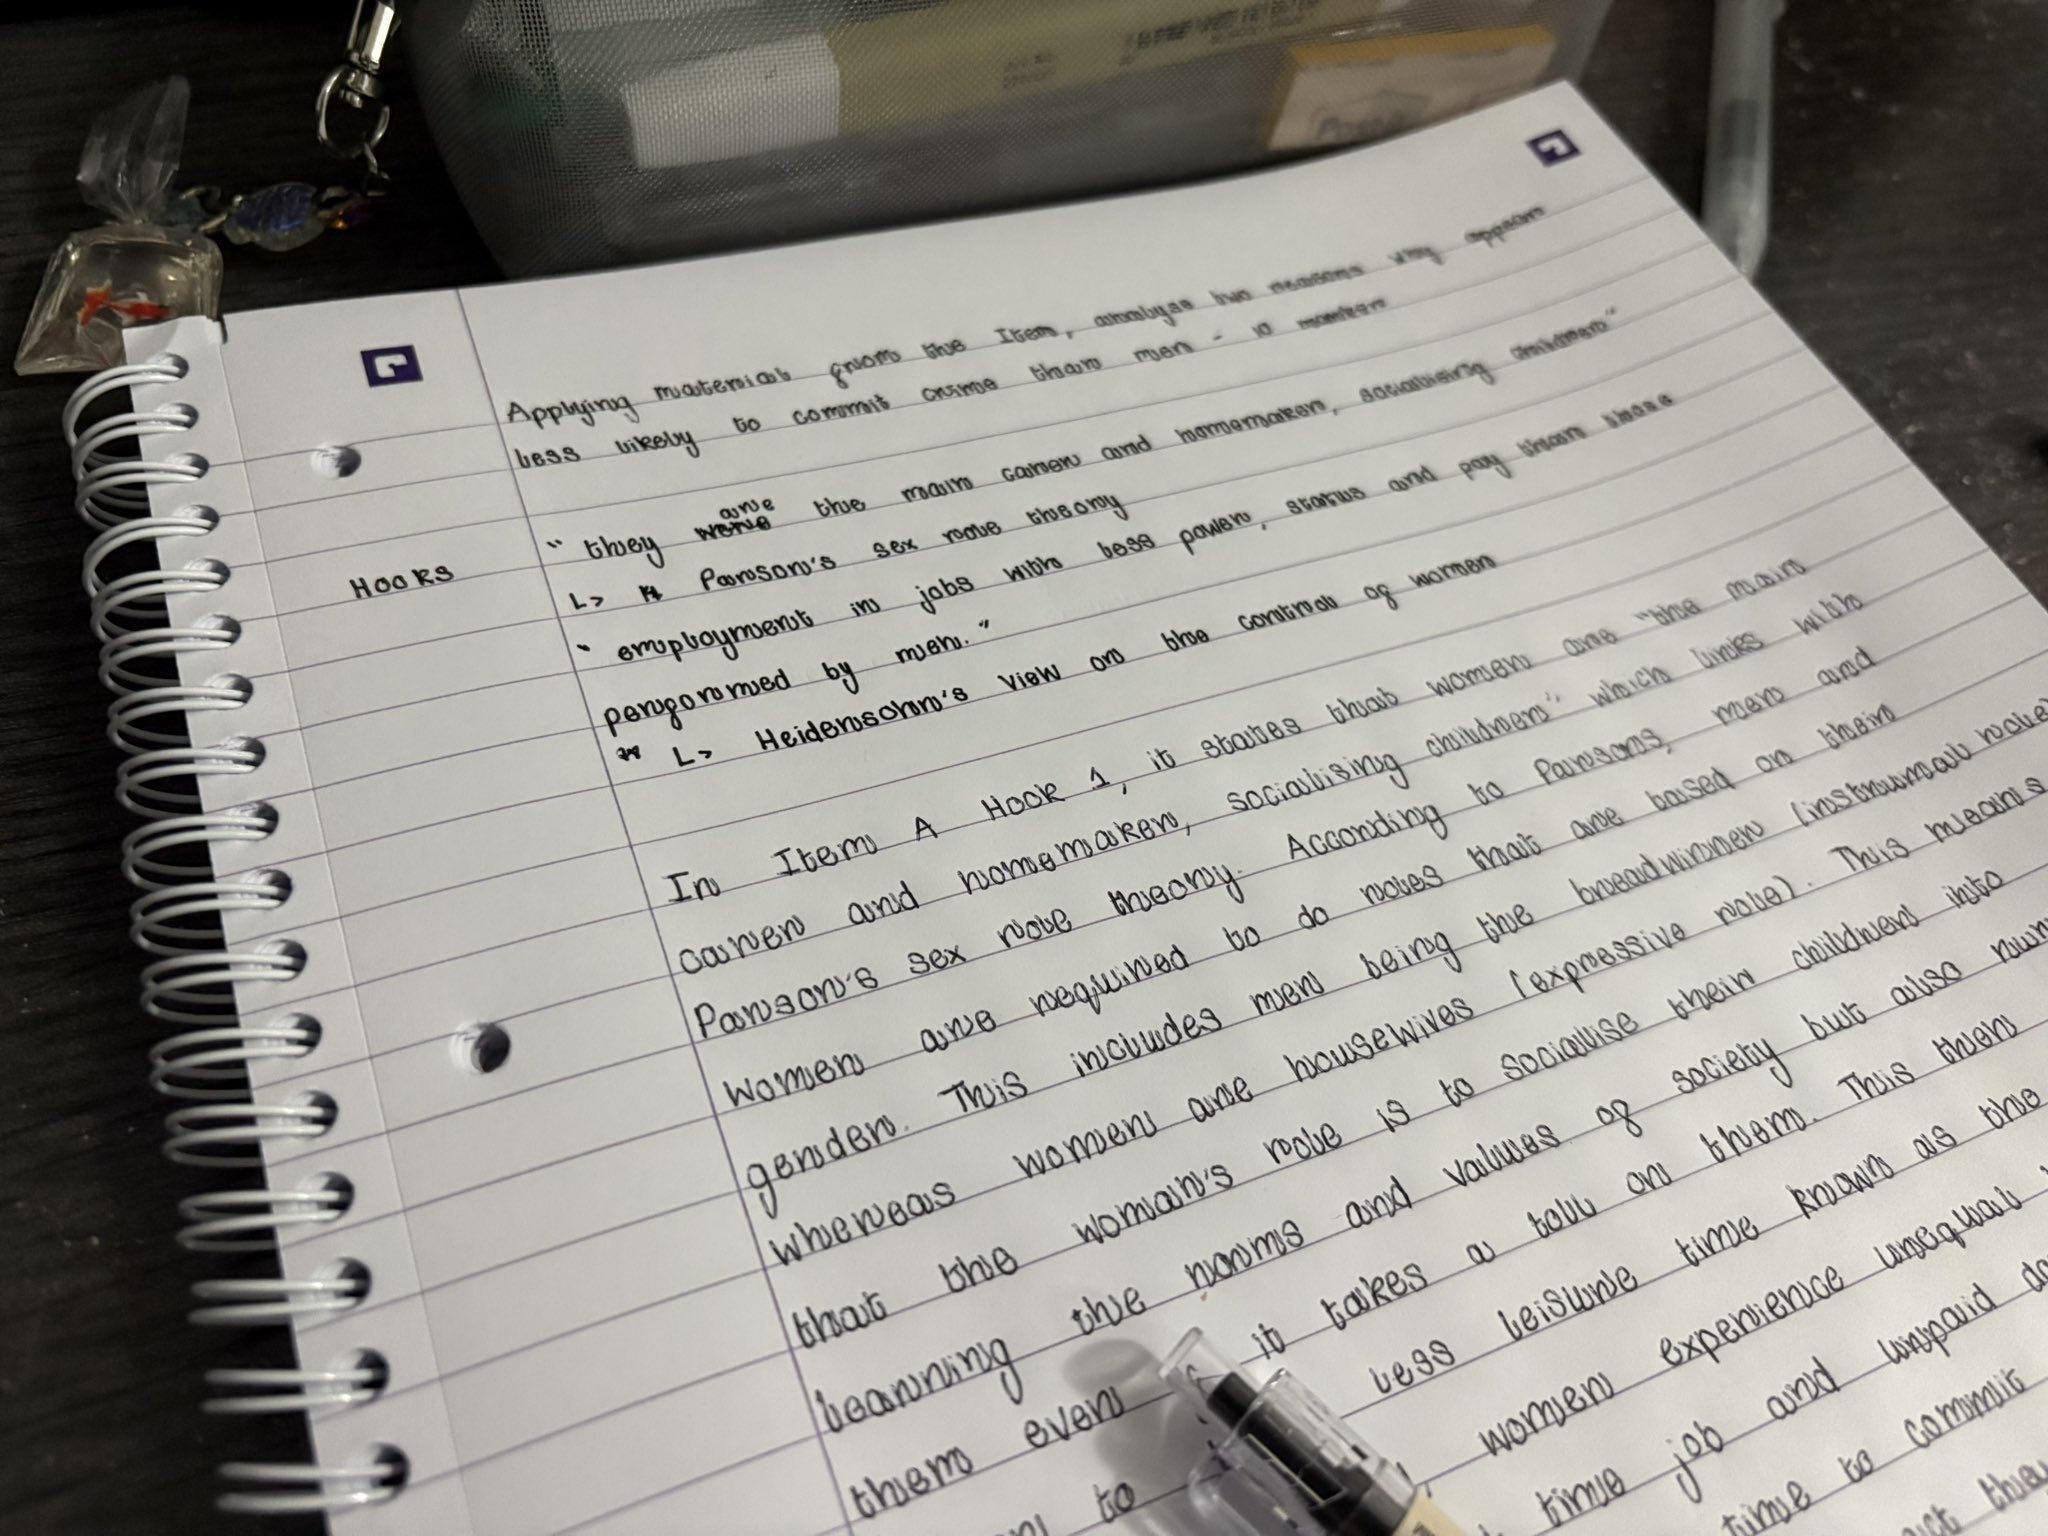 Applying material from the Item, analyse two reasons why appear
less likely to commit crime than men - 10 marker
HOOKS
"they are the main carer and homemaker, socialising children"
L> Parson's sex role theory
"employment in jobs with less power, status and pay than those
performed by men."
L> Heidensohn's view on the control of women
In Item A Hook 1, it states that women are "the main
carer and homemaker, socialising children" which links with
Parson's sex role theory. According to Parsons, men and
women are required to do roles that are based on their
gender. This includes men being the breadwinner (instrumal role)
whereas women are housewives (expressive role). This means
that the woman's role is to socialise their children into
learning the norms and values of society but also
them even it takes a toll on them. This then
to less leisure time known as the
women experience unequal
time job and unpaid
time to commit
they